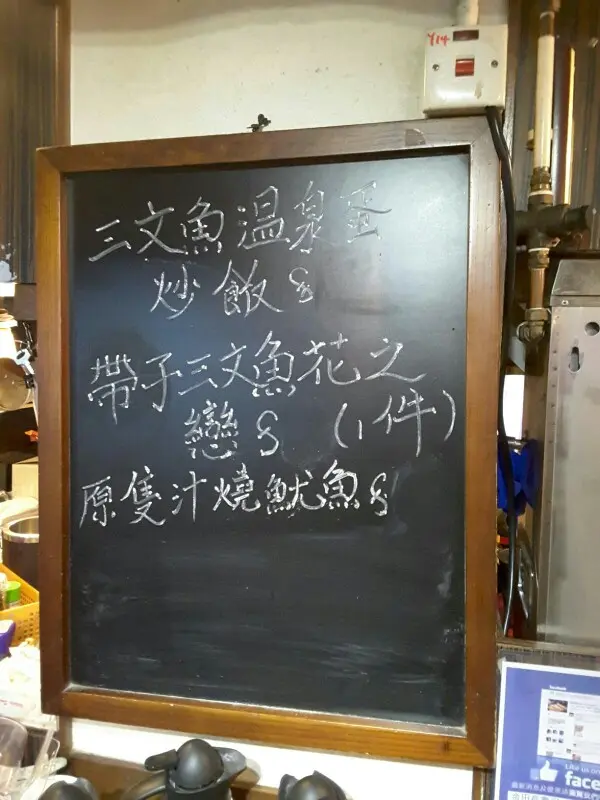 Y14
三文魚溫泉蛋
炒飯 §
帶子三文魚花之
戀 § (1件)
原隻汁燒魷魚 §
facebook
Like us on
face